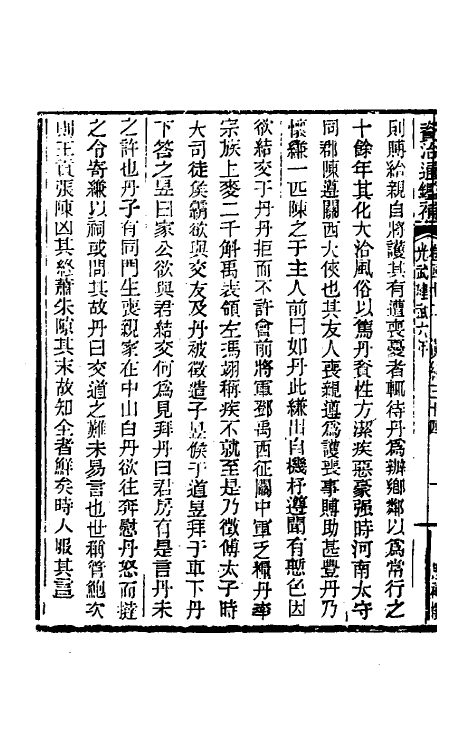 資治通鑑補
光武建武六年
則賻給親自將護其有遭喪憂者輒待丹爲辦鄉鄰以爲常行之
十餘年其化大洽風俗以篤丹資性方潔疾惡豪强時河南太守
同郡陳遵關西大俠也其友人喪親遵爲護喪事賻助甚豐丹乃
懷縑一匹陳之于主人前曰如丹此縑出自機杼遵聞有慙色因
欲結交于丹丹拒而不許會前將軍鄧禹西征關中軍乏糧丹率
宗族上麥二千斛禹表領左馮翊稱疾不就至是乃徵傅太子時
大司徒侯霸欲與交友及丹被徵遣子昱候于道昱拜于車下丹
下答之昱曰家公欲與君結交何爲見拜丹曰君房有是言丹未
之許也丹子有同門生喪親家在中山白丹欲往奔慰丹怒而撻
之令寄縑以祠或問其故丹曰交道之難未易言也世稱管鮑次
則王貢張陳凶其終蕭朱隙其末故知全者鮮矣時人服其言